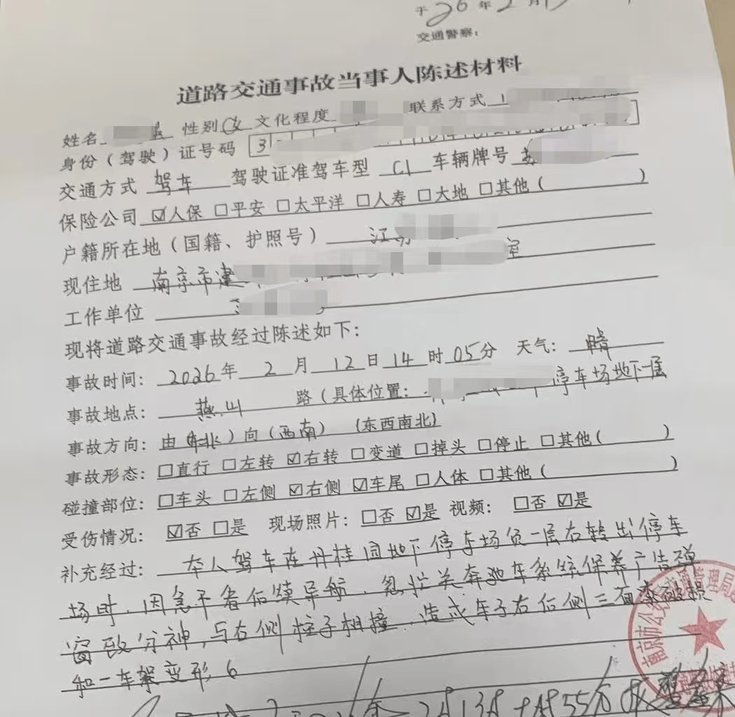 于26年2月
交通警察:
道路交通事故当事人陈述材料
姓名 性别 女 文化程度 联系方式
身份(驾驶)证号码 3
交通方式 驾车 驾驶证准驾车型 C1 车辆牌号 苏
保险公司 ☑人保 □平安 □太平洋 □人寿 □大地 □其他( )
户籍所在地(国籍、护照号) 江苏
现住地 南京市建 室
工作单位
现将道路交通事故经过陈述如下:
事故时间: 2026年 2 月 12 日 14 时 05 分 天气: 晴
事故地点: 燕山 路(具体位置: 停车场地下一层
事故方向: 由( 北)向(西南) (东西南北)
事故形态: □直行 □左转 ☑右转 □变道 □掉头 □停止 □其他( )
碰撞部位: □车头 □左侧 ☑右侧 ☑车尾 □人体 □其他( )
受伤情况: ☑否 □是 现场照片: □否 ☑是 视频: □否 ☑是
补充经过: 本人驾车在丹桂园地下停车场负一层右转出停车
场时,因急于看后续导航,急拦关奔驰车系统保养广告弹
窗致分神,与右侧柱子相撞,造成车子右后侧三面 破损
和一车架变形。